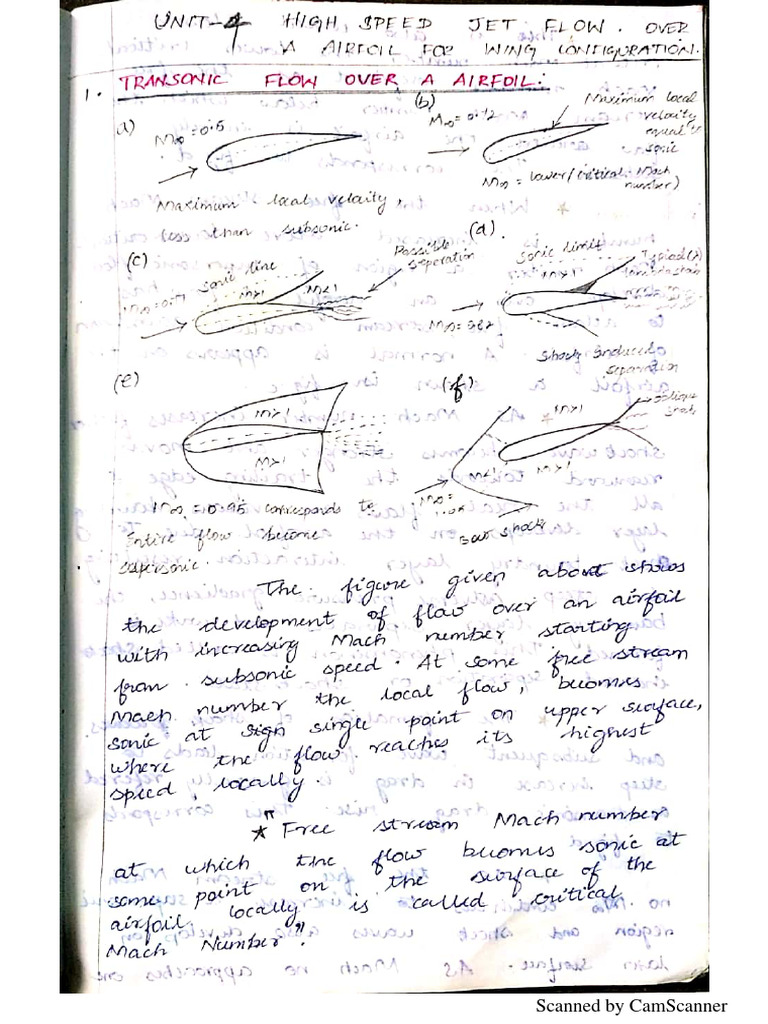 UNIT-4 HIGH SPEED JET FLOW. OVER
A AIRFOIL FOR WING CONFIGURATION.
1. TRANSONIC FLOW OVER A AIRFOIL:
a) M∞ = 0.5
Maximum local velocity,
less than subsonic.
(b)
M∞ = 0.72
Maximum local
velocity
equal to
sonic
M∞ = lower (critical Mach
number)
(c)
sonic line
M>1
M<1
Possible
Seperation
(d).
Sonic limit
M>1
Shock induced
seperation
(e)
M>1
M>1
M∞ = 0.95 corresponds to
Entire flow become
supersonic.
(f)
M>1
M<1
M>1
M∞ =
Bow shock
The figure given about shows
the development of flow over an airfoil
with increasing Mach number starting
from subsonic speed. At some free stream
Mach number the local flow, becomes
sonic at sign single point on upper surface,
where the flow reaches its highest
speed locally.
* "Free stream Mach number
at which the flow becomes sonic at
some point on the surface of the
airfoil locally is called critical
Mach Number".
Scanned by CamScanner